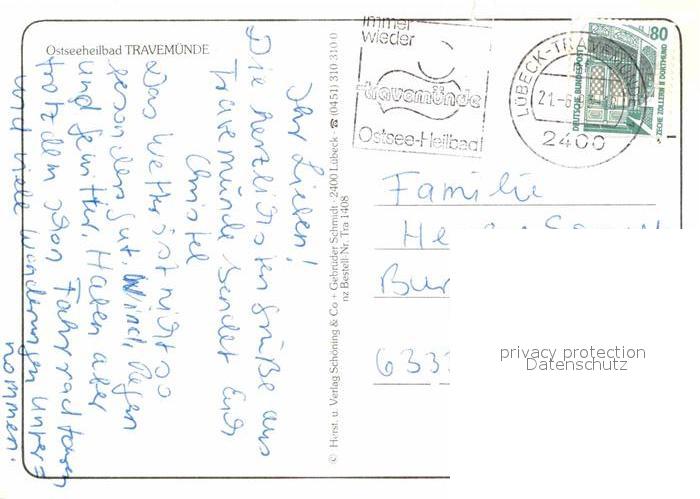 Ostseeheilbad TRAVEMÜNDE
Ihr Lieben!
Die herzlichsten Grüße aus
Travemünde sendet Euch
Christel
Das Wetter ist nicht so
besonders gut. Wind, Regen
und Gewitter. Haben aber
trotzdem schon Fahrradtouren
und viele Wanderungen unter=
nommen.
© Herst. u. Verlag Schöning & Co + Gebrüder Schmidt · 2400 Lübeck · ☎ (0451) 310 310 0
nz Bestell-Nr. Tra 1408
immer
wieder
travemünde
Ostsee-Heilbad
LÜBECK-TRAVEMÜNDE
21.-6.
2400
80
DEUTSCHE BUNDESPOST
ZECHE ZOLLERN II DORTMUND
1
Familie
He
Bur
633
privacy protection
Datenschutz